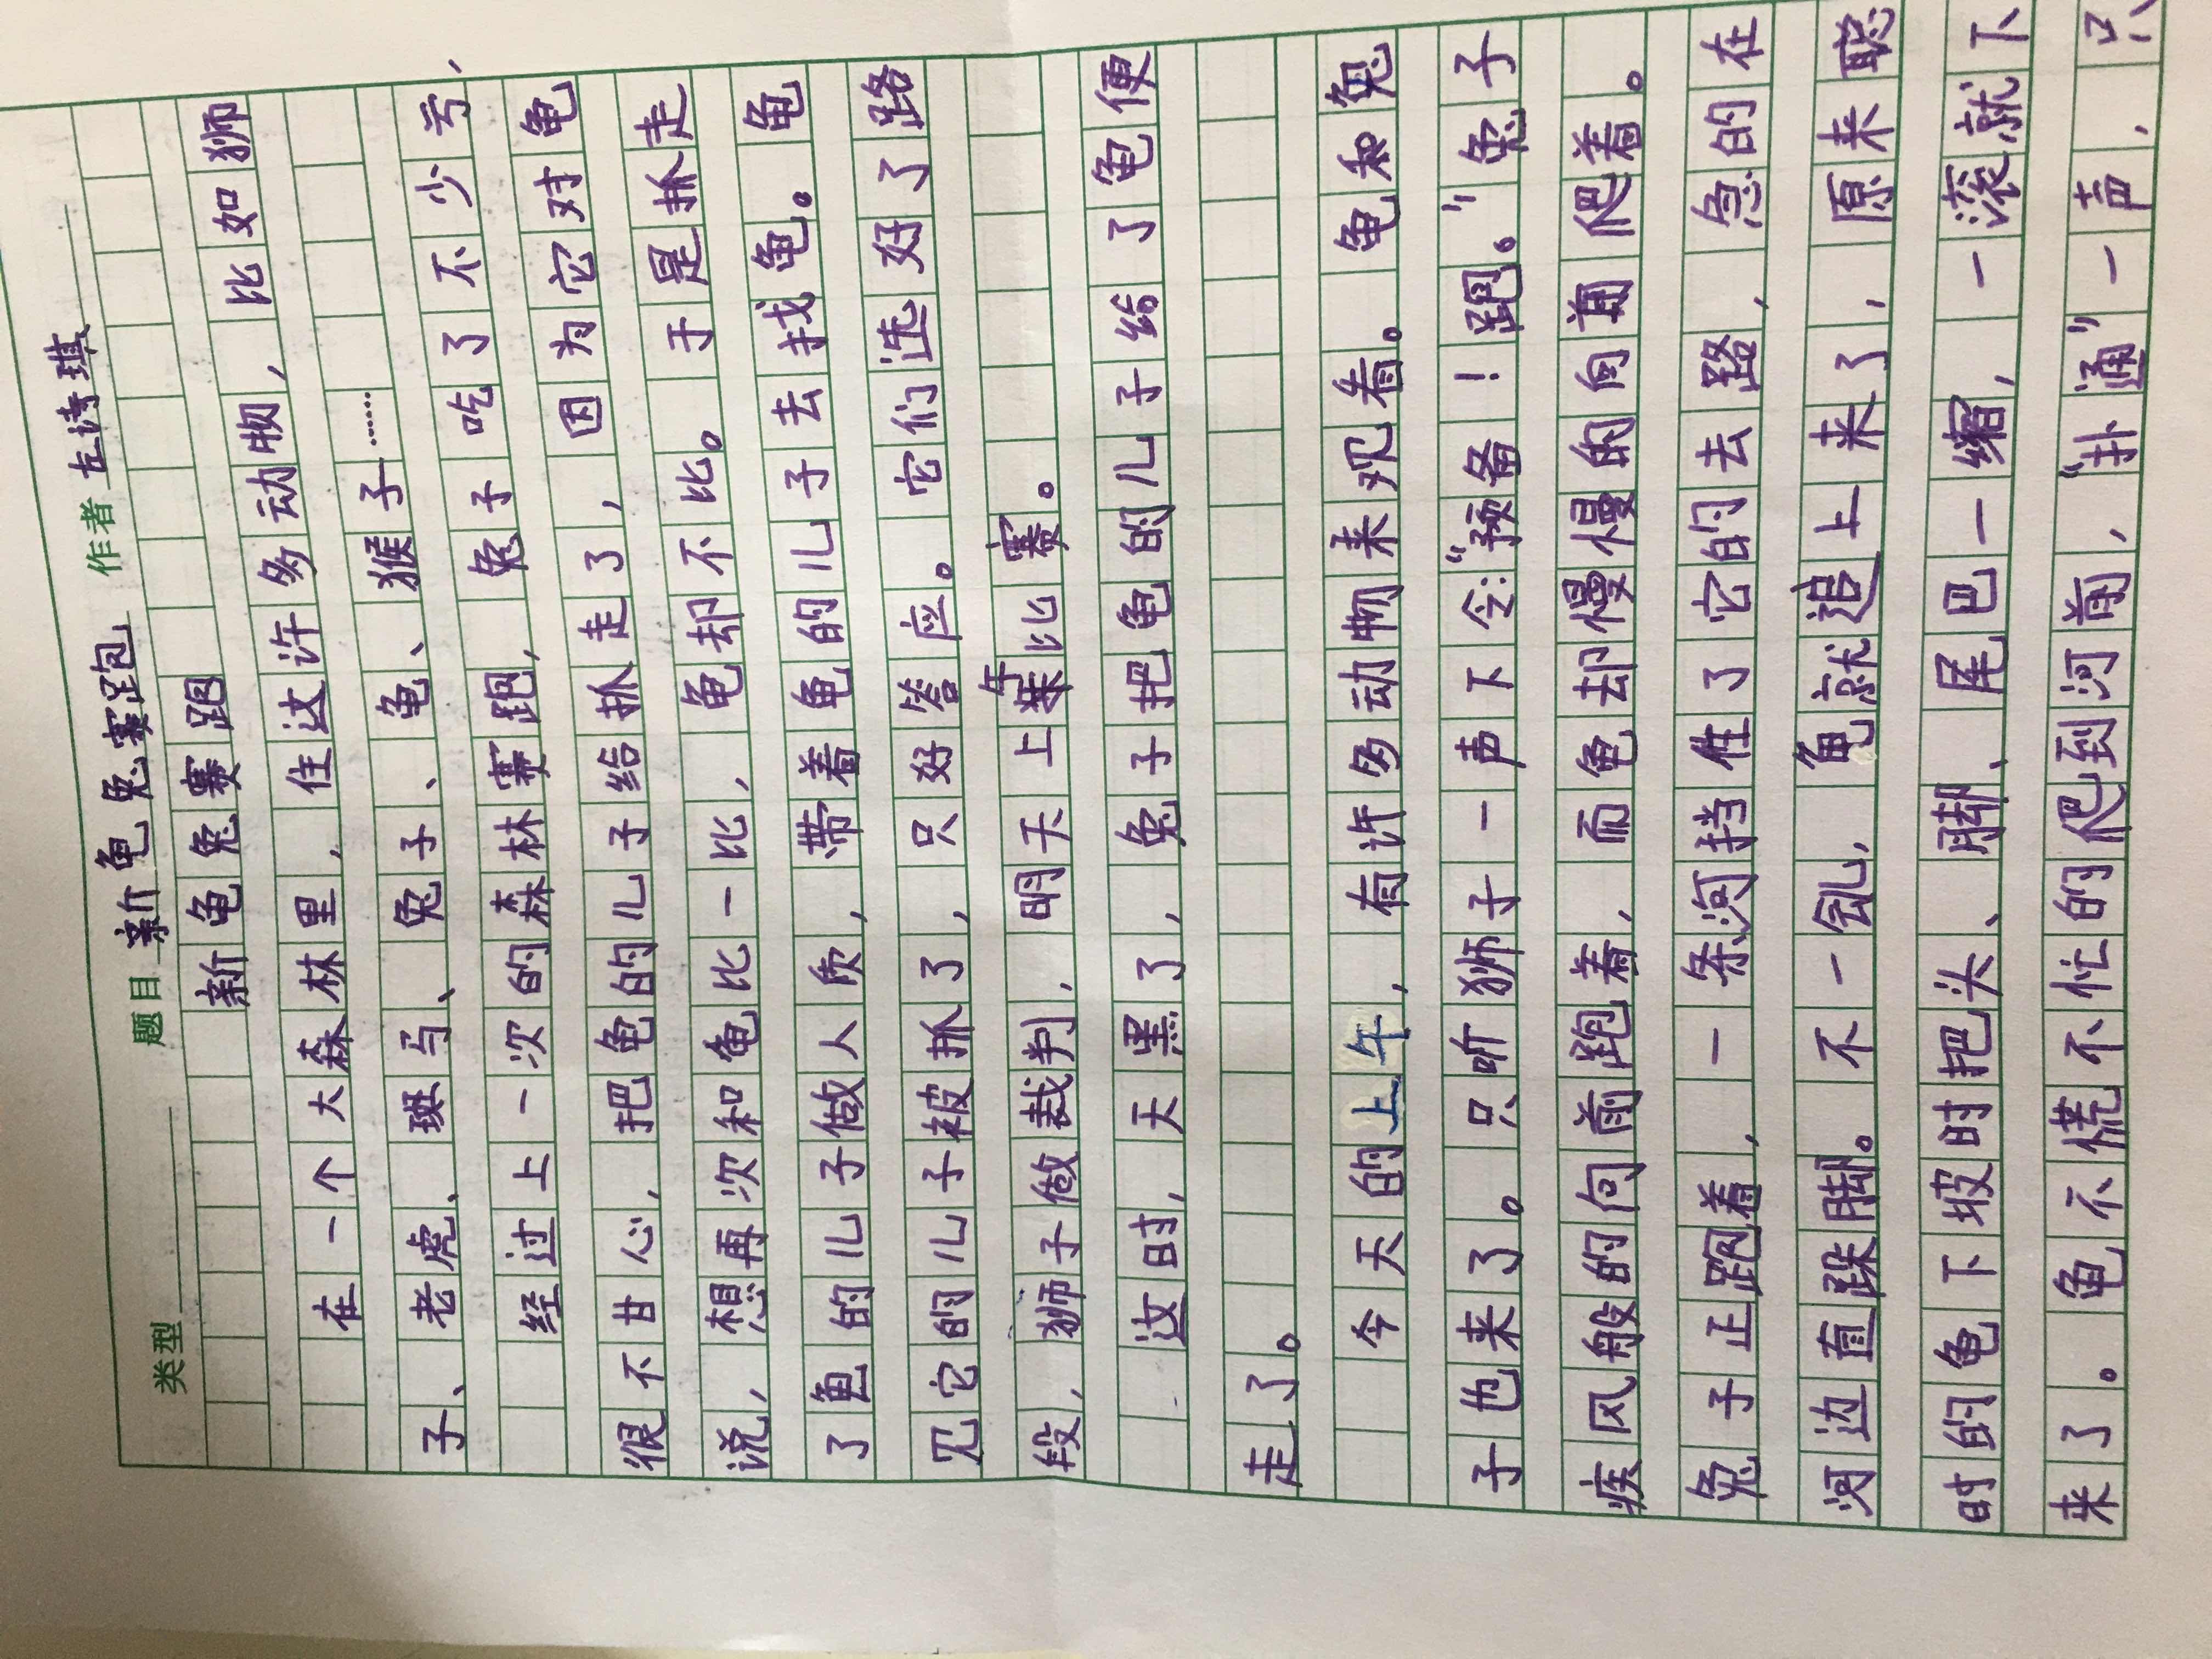 类型 题目 新龟兔赛跑 作者 左诗琪
新龟兔赛跑
在一个大森林里，住这许多动物，比如狮
子、老虎、斑马、兔子、龟、猴子……
经过上一次的森林赛跑，兔子吃了不少亏，
很不甘心，把龟的儿子给抓走了，因为它对龟
说，想再次和龟比一比，龟却不比。于是抓走
了龟的儿子做人质，带着龟的儿子去找龟。龟
见它的儿子被抓了，只好答应。它们选好了路
段，狮子做裁判，明天上午比赛。
这时，天黑了，兔子把龟的儿子给了龟便
走了。
今天的上午，有许多动物来观看。龟和兔
子也来了。只听狮子一声下令:“预备！跑。”兔子
疾风般的向前跑着，而龟却慢慢的向前爬着。
兔子正跑着，一条河挡住了它的去路，急的在
河边直跺脚。不一会儿，龟就追上来了，原来聪
时的龟下坡时把头、脚、尾巴一缩，一滚就下
来了。龟不慌不忙的爬到河前，“扑通”一声，只